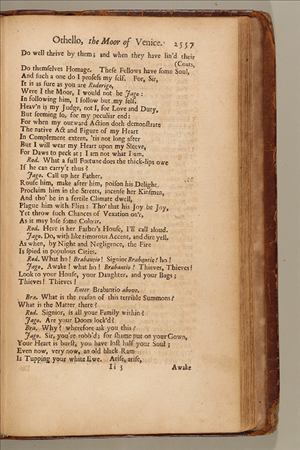 Othello, the Moor of Venice. 2557
Do well thrive by them; and when they have lin'd their
(Coats,
Do themselves Homage. These Fellows have some Soul,
And such a one do I profess my self. For, Sir,
It is as sure as you are Roderigo,
Were I the Moor, I would not be Jago:
In following him, I follow but my self.
Heav'n is my Judge, not I, for Love and Duty,
But seeming so, for my peculiar end:
For when my outward Action doth demonstrate
The native Act and Figure of my Heart
In Complement extern, 'tis not long after
But I will wear my Heart upon my Sleeve,
For Daws to peck at; I am not what I am.
Rod. What a full Fortune does the thick-lips owe
If he can carry't thus?
Jago. Call up her Father,
Rouse him, make after him, poison his Delight.
Proclaim him in the Streets, incense her Kinsmen,
And tho' he in a fertile Climate dwell,
Plague him with Flies: Tho' that his Joy be Joy,
Yet throw such Chances of Vexation on't,
As it may lose some Colour.
Rod. Here is her Father's House, I'll call aloud.
Jago. Do, with like timorous Accent, and dire yell,
As when, by Night and Negligence, the Fire
Is spied in populous Cities.
Rod. What ho! Brabantio! Signior Brabantio! ho!
Jago. Awake! what ho! Brabantio! Thieves, Thieves!
Look to your House, your Daughter, and your Bags;
Thieves! Thieves!
Enter Brabantio above.
Bra. What is the reason of this terrible Summons?
What is the Matter there?
Rod. Signior, is all your Family within?
Jago. Are your Doors lock'd?
Bra. Why? wherefore ask you this?
Jago. Sir, you're robb'd; for shame put on your Gown,
Your Heart is burst, you have lost half your Soul;
Even now, very now, an old black Ram
Is Tupping your white Ewe. Arise, arise,
Ii 3 Awake